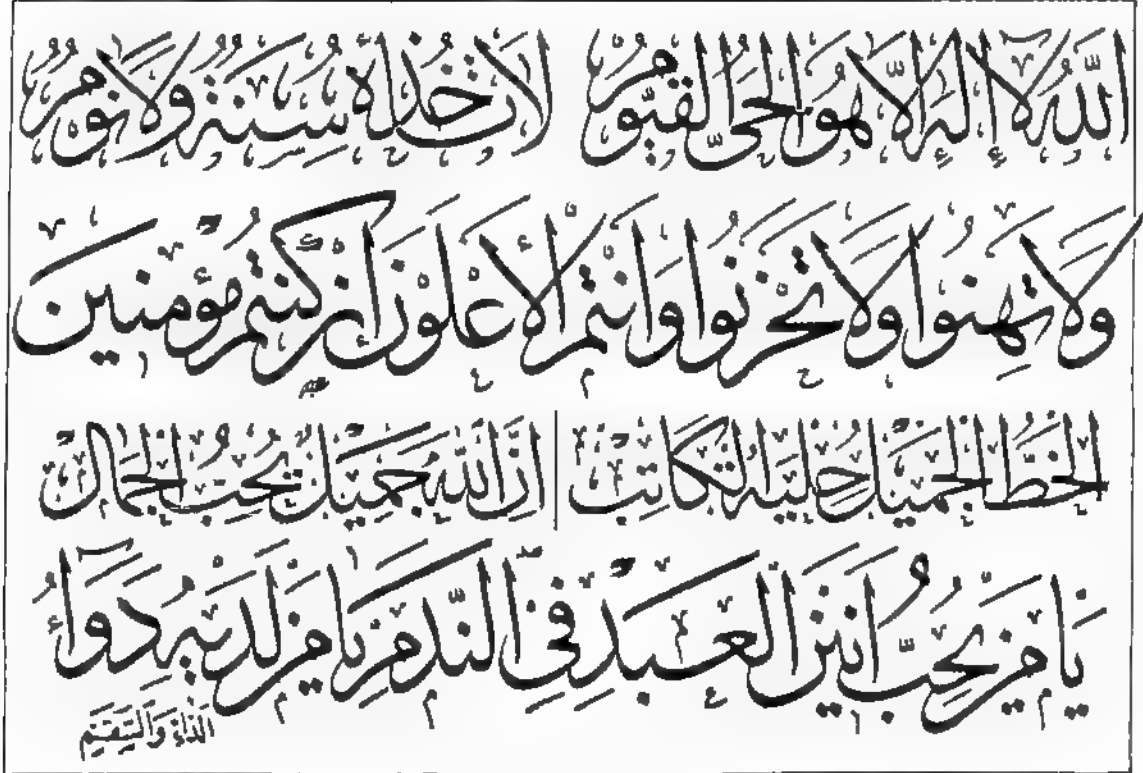 اَللّٰهُ لَا إِلٰهَ إِلَّا هُوَ الْحَيُّ الْقَيُّومُ لَا تَأْخُذُهُ سِنَةٌ وَلَا نَوْمٌ
وَلَا تَهِنُوا وَلَا تَحْزَنُوا وَأَنْتُمُ الْأَعْلَوْنَ إِنْ كُنْتُمْ مُؤْمِنِينَ
الْخَطُّ الْجَمِيلُ حِلْيَةُ الْكَاتِبِ إِنَّ اللّٰهَ جَمِيلٌ يُحِبُّ الْجَمَالَ
يَا مَنْ يُحِبُّ أَنِينَ الْعَبْدِ فِي النَّدَمِ يَا مَنْ لَدَيْهِ دَوَاءُ
الدَّاءِ وَالسَّقَمِ